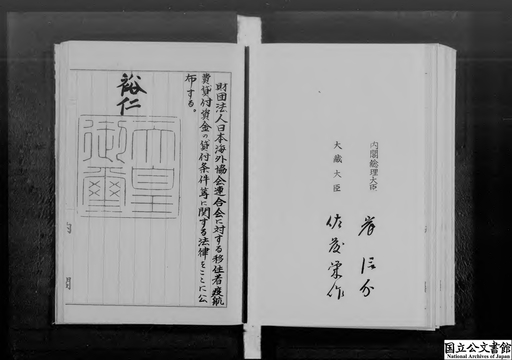 財団法人日本海外協会連合会に対する移住者渡航
費貸付資金の貸付条件等に関する法律をここに公
布する。
裕仁
天皇
御璽
内閣総理大臣
岸信介
大蔵大臣
佐藤栄作
国立公文書館
National Archives of Japan